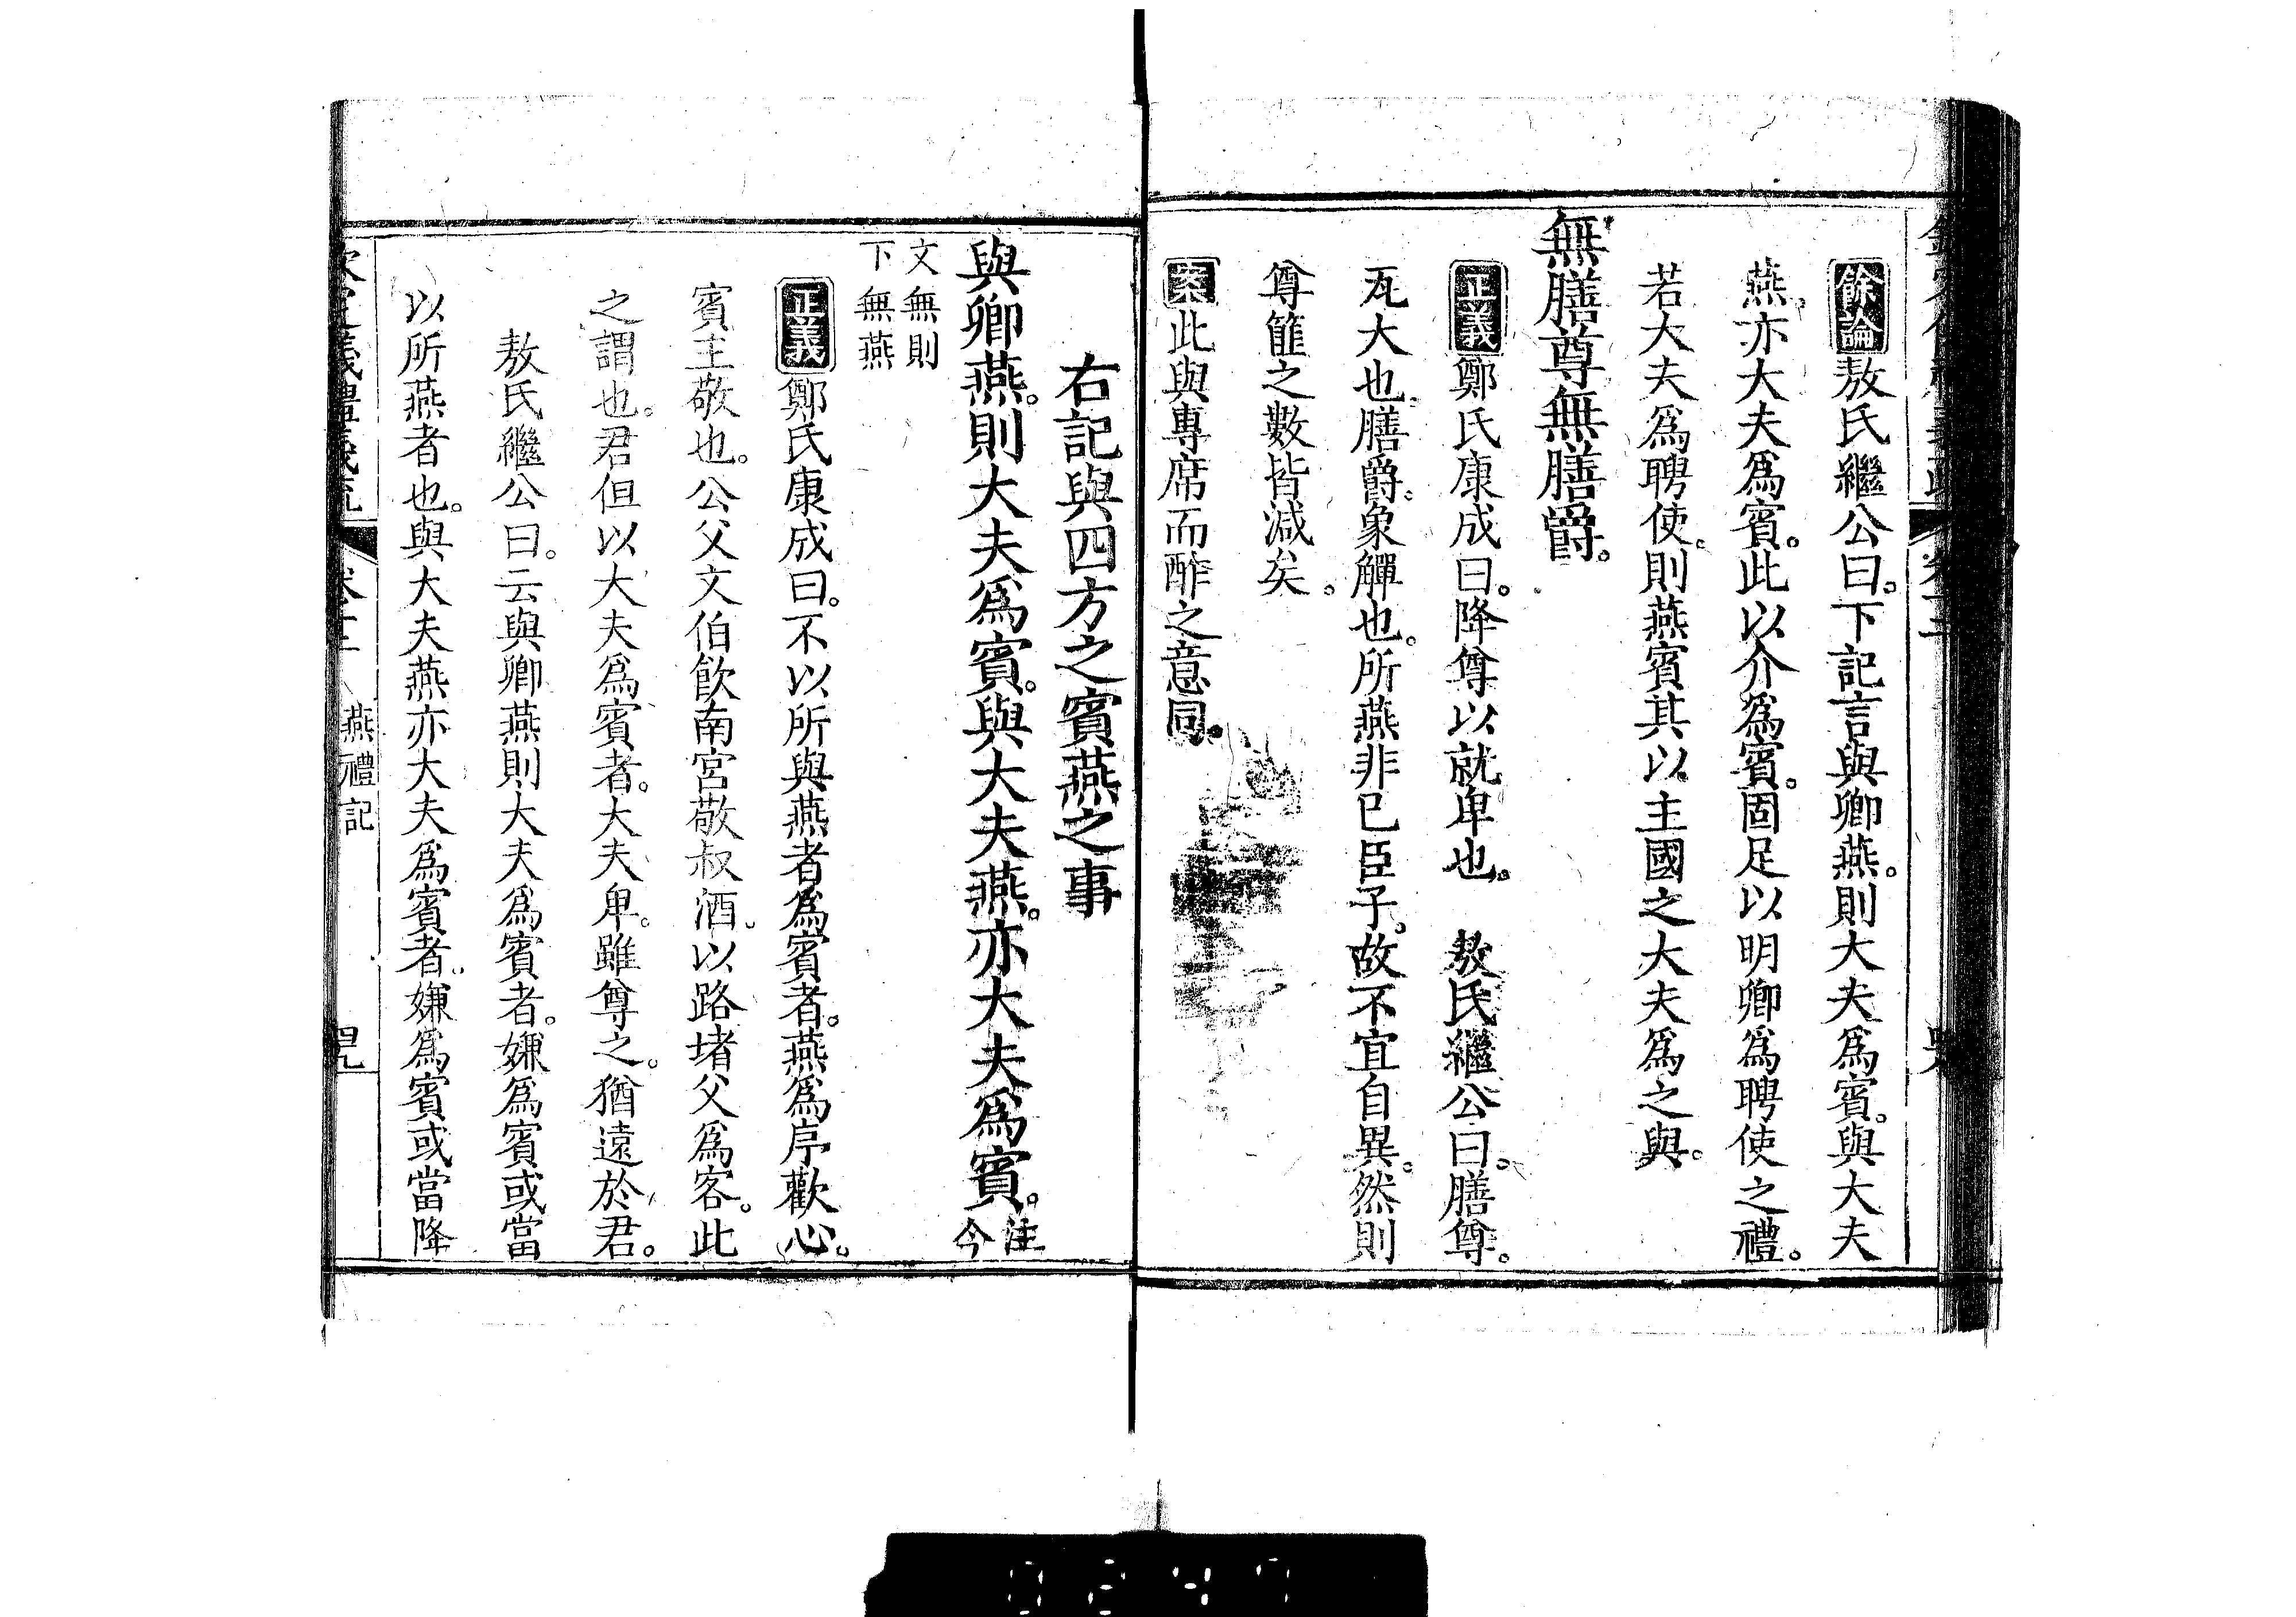 餘論敖氏繼公曰。下記言與卿燕。則大夫爲賓。與大夫
燕。亦大夫爲賓。此以介爲賓。固足以明卿爲聘使之禮。
若大夫爲聘使。則燕賓其以主國之大夫爲之與。
無膳尊無膳爵。
正義鄭氏康成曰。降尊以就卑也。　敖氏繼公曰。膳尊。
瓦大也。膳爵。象觶也。所燕非已臣子。故不宜自異。然則
尊篚之數皆減矣。
案此與專席而酢之意同。
右記與四方之賓燕之事
與卿燕。則大夫爲賓。與大夫燕。亦大夫爲賓。注今
文無則
下無燕
正義鄭氏康成曰。不以所與燕者爲賓者。燕爲序歡心。
賓主敬也。公父文伯飮南宮敬叔酒。以路堵父爲客。此
之謂也。君但以大夫爲賓者。大夫卑。雖尊之。猶遠於君。
敖氏繼公曰。云與卿燕則大夫爲賓者。嫌爲賓或當
以所燕者也。與大夫燕亦大夫爲賓者。嫌爲賓或當降
燕禮記